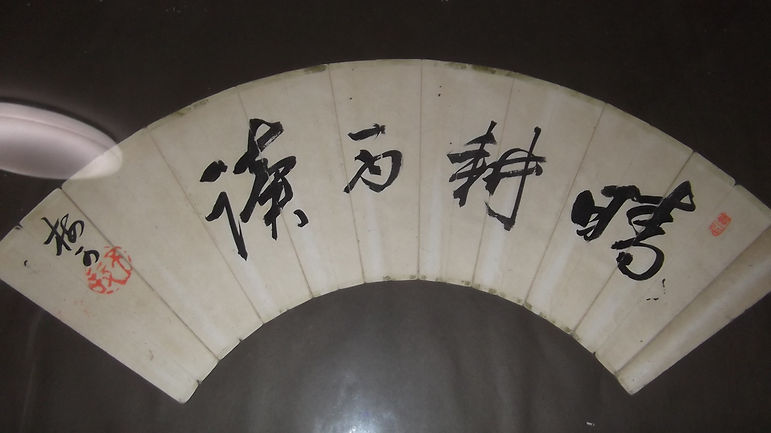 晴耕雨讀